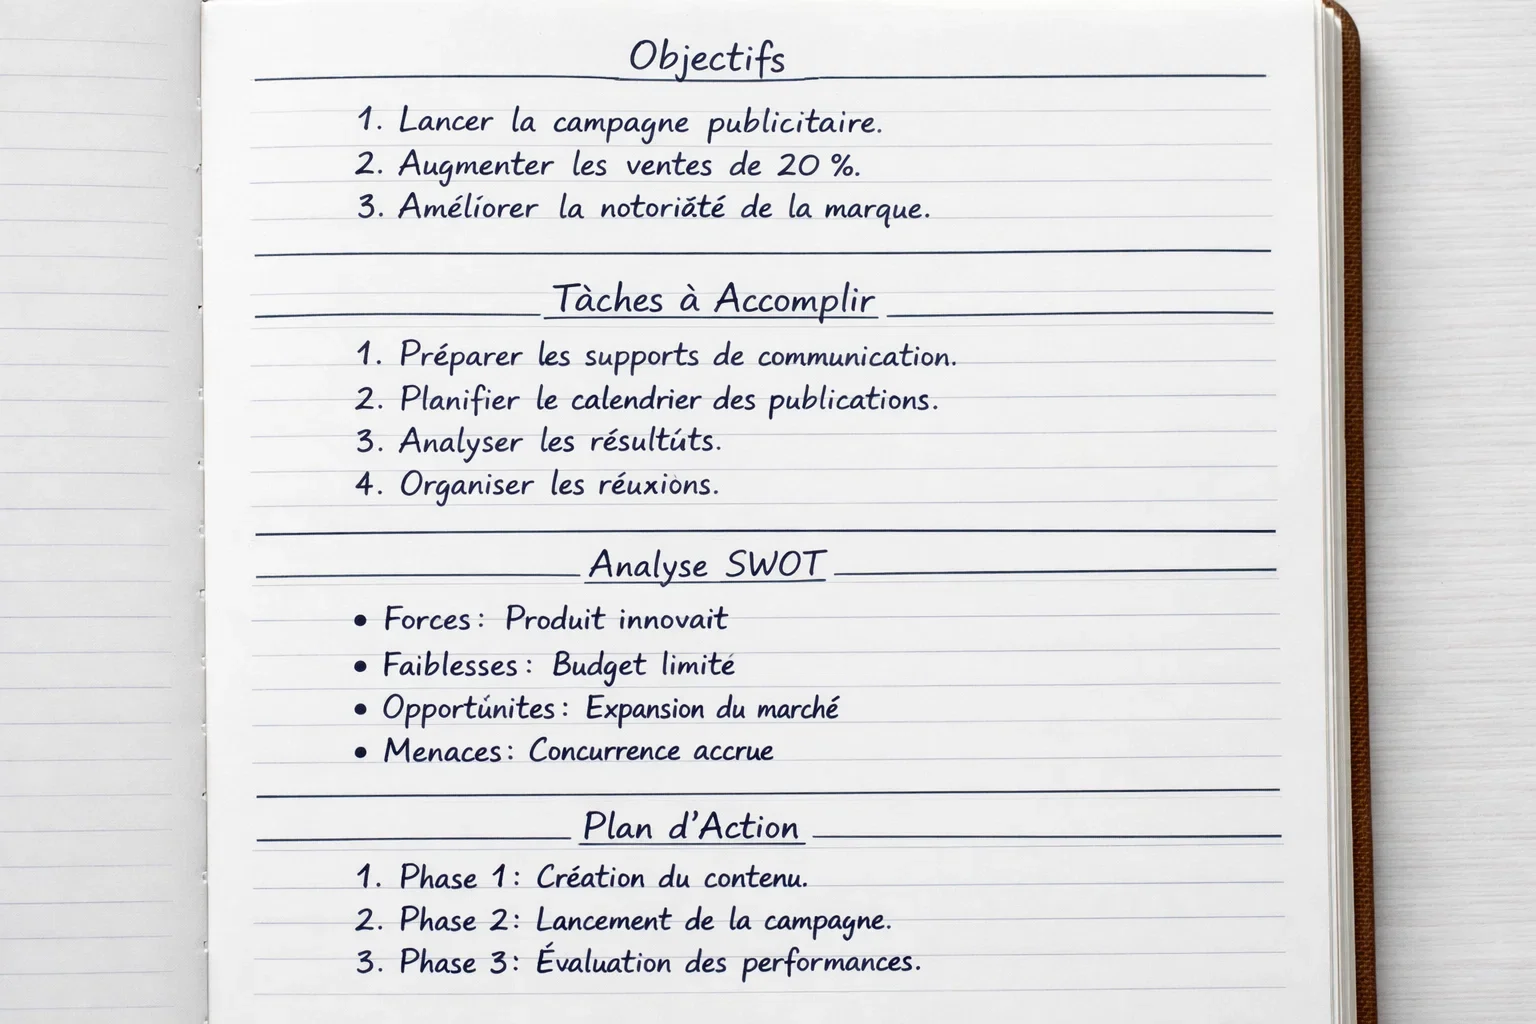 Objectifs
1. Lancer la campagne publicitaire.
2. Augmenter les ventes de 20 %.
3. Améliorer la notoriăté de la marque.
Tàches à Accomplir
1. Préparer les supports de communication.
2. Planifier le calendrier des publications.
3. Analyser les résultúts.
4. Organiser les réuxions.
Analyse SWOT
• Forces : Produit innovait
• Faiblesses : Budget limité
• Opportúnites : Expansion du marché
• Menaces : Concurrence accrue
Plan d’Action
1. Phase 1 : Création du contenu.
2. Phase 2 : Lancement de la campagne.
3. Phase 3 : Évaluation des performances.